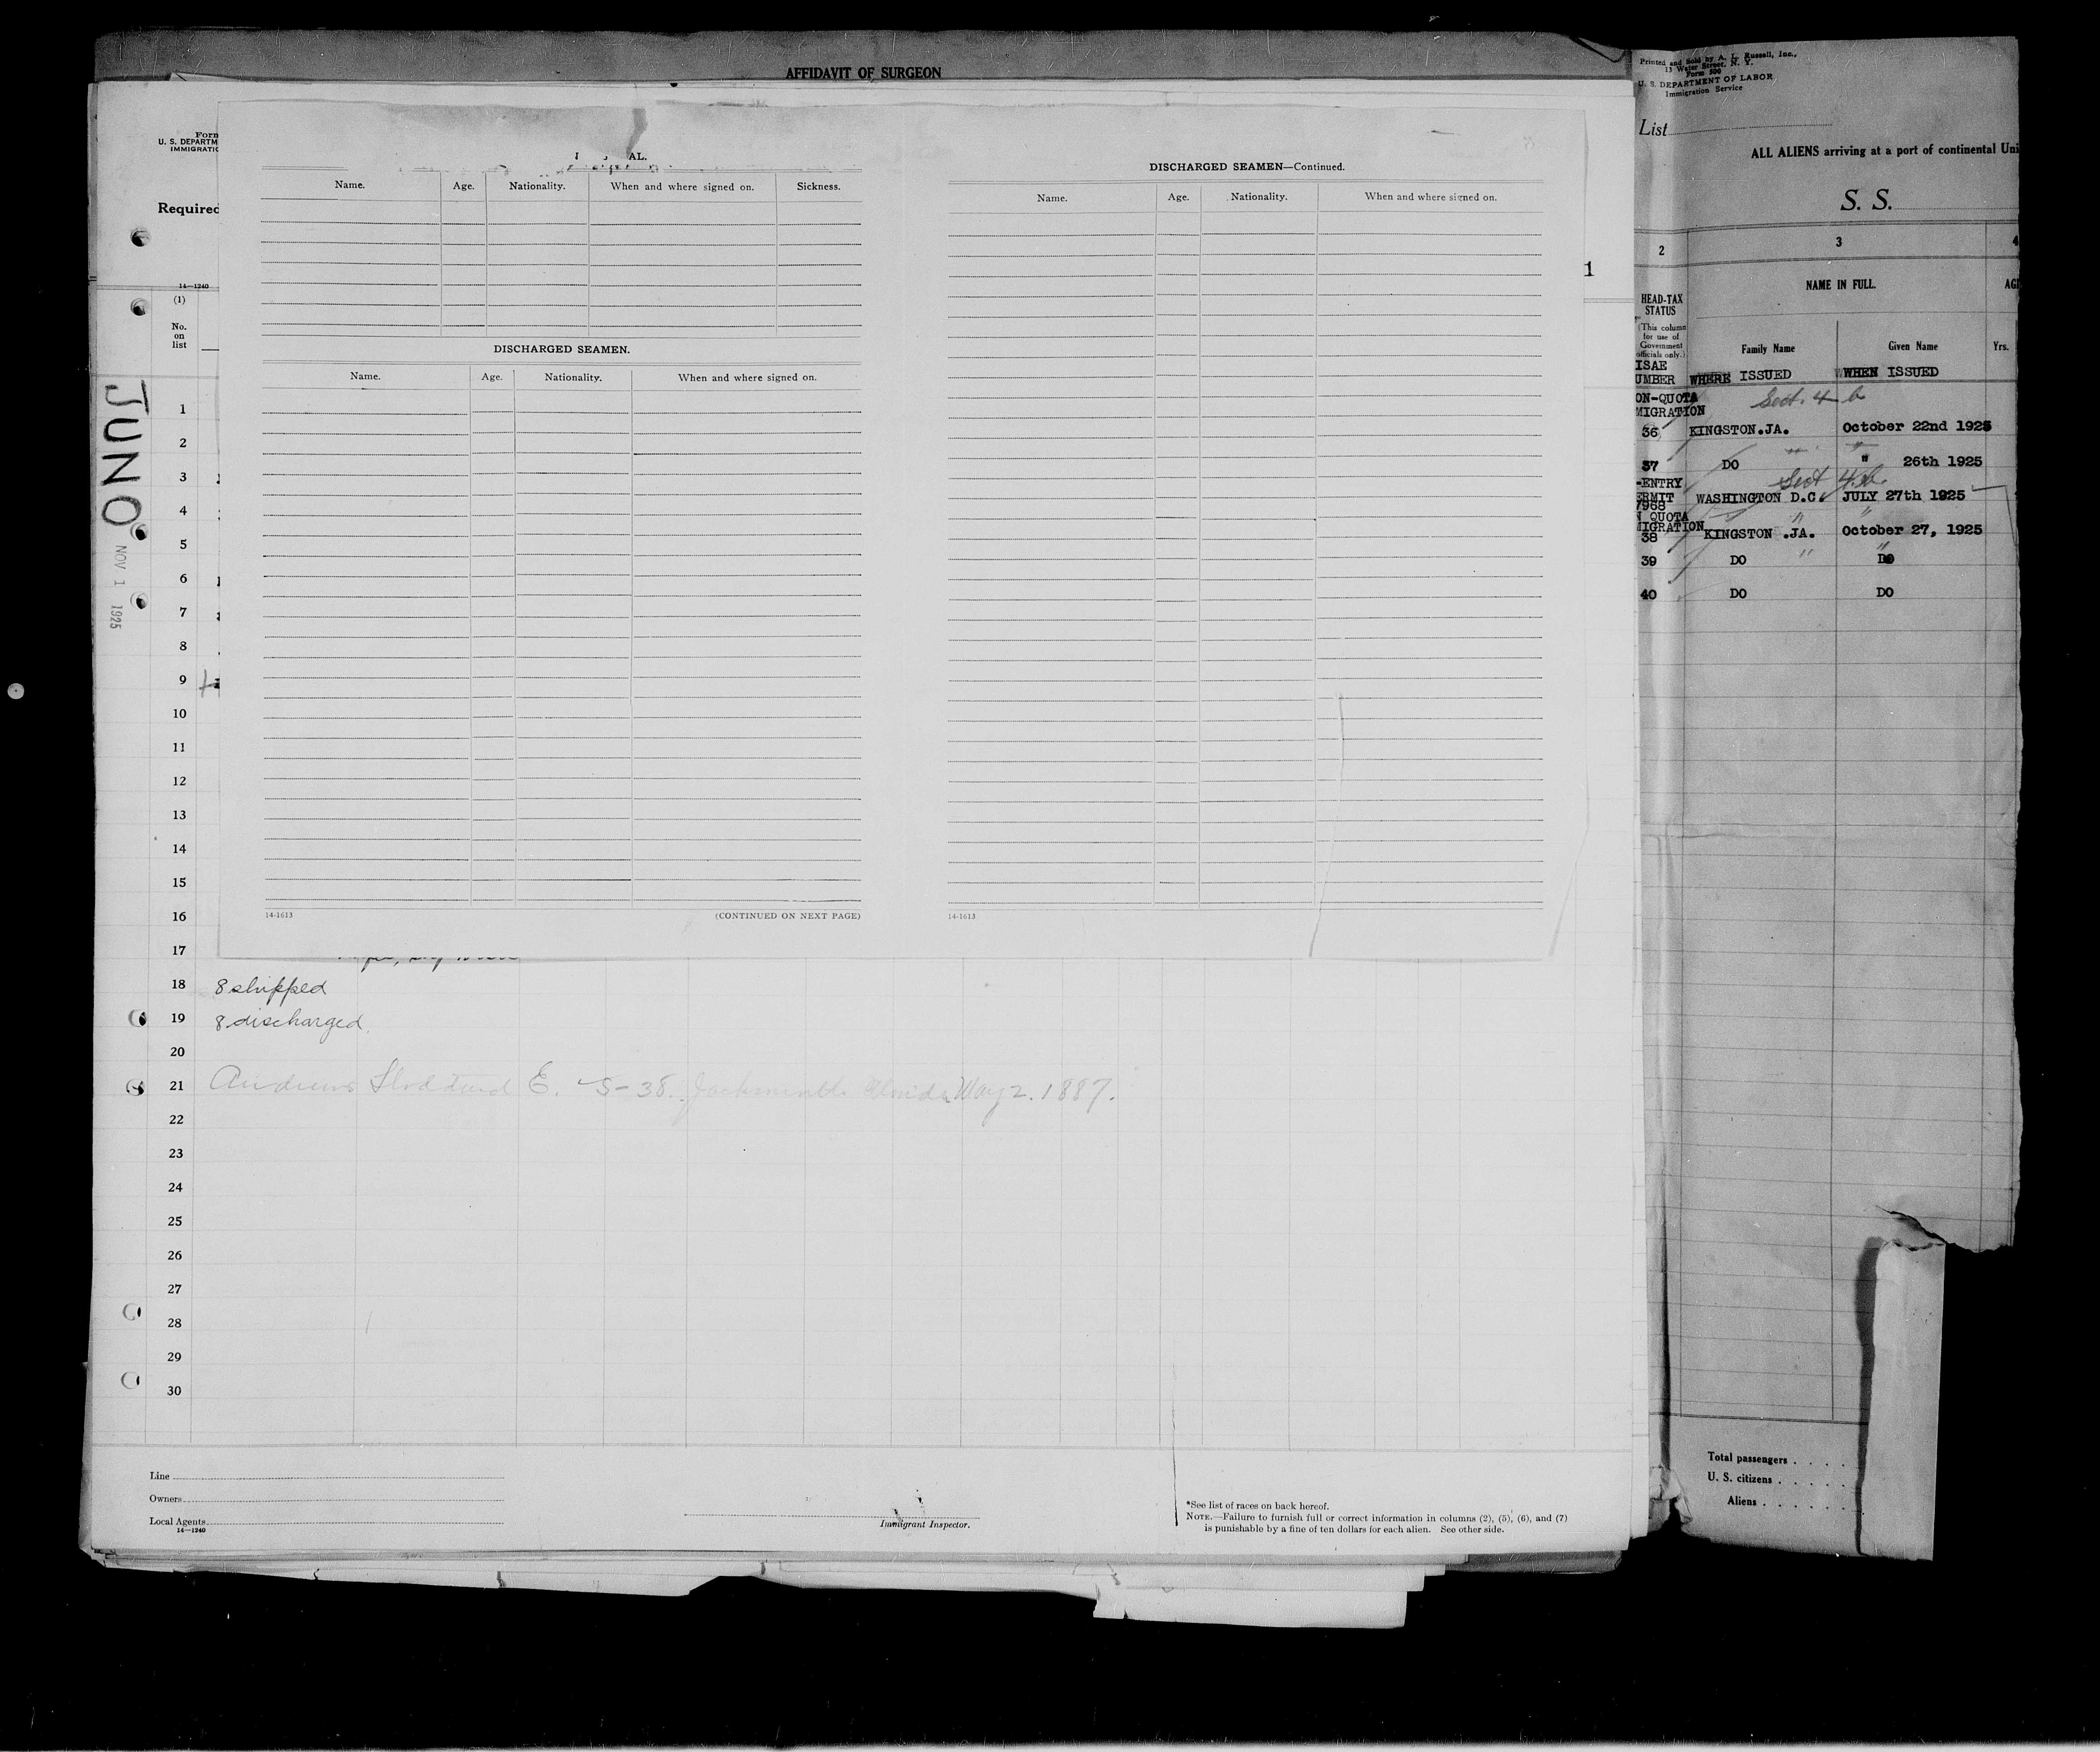 AFFIDAVIT OF SURGEON
Form
U. S. DEPARTM
IMMIGRATIO
Required
14—1240
(1)
No.
on
list
JUNO
NOV 1 1925
1
2
3
4
5
6
7
8
9
10
11
12
13
14
15
16
17
18 8 shipped
19 8 discharged
20
21 E. S-38. Florida May 2. 1887.
22
23
24
25
26
27
28
29
30
Line
Owners
Local Agents
14—1240
Immigrant Inspector.
*See list of races on back hereof.
NOTE.—Failure to furnish full or correct information in columns (2), (5), (6), and (7)
is punishable by a fine of ten dollars for each alien. See other side.
AL.
Name. Age. Nationality. When and where signed on. Sickness.
DISCHARGED SEAMEN.
Name. Age. Nationality. When and where signed on.
14-1613 (CONTINUED ON NEXT PAGE)
DISCHARGED SEAMEN—Continued.
Name. Age. Nationality. When and where signed on.
14-1613
1
Printed and Sold by A. L. Russell, Inc.,
13 Water Street, N. Y.
Form 500
U. S. DEPARTMENT OF LABOR
Immigration Service
List
ALL ALIENS arriving at a port of continental Uni
S. S.
2 3 4
HEAD-TAX
STATUS
(This column
for use of
Government
officials only.)
NAME IN FULL.
AG
Family Name Given Name Yrs.
ISAE
UMBER WHERE ISSUED WHEN ISSUED
ON-QUOTA
MIGRATION Sect. 4 b
36 KINGSTON.JA. October 22nd 1925
37 DO " 26th 1925
-ENTRY Sect 4.b.
ERMIT WASHINGTON D.C. JULY 27th 1925
7968
N QUOTA
MIGRATION
38 KINGSTON .JA. October 27, 1925
39 DO DO
40 DO DO
Total passengers
U. S. citizens
Aliens